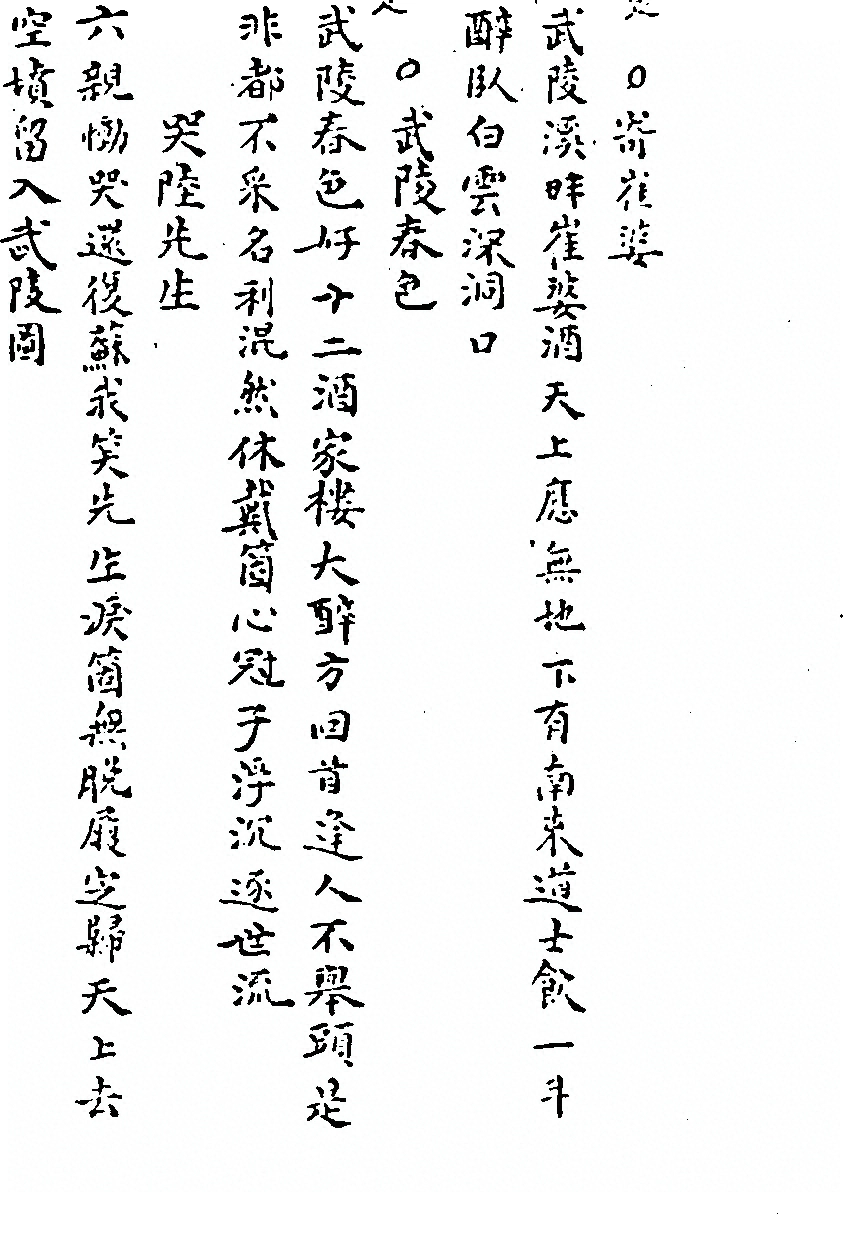 ○寄崔婆
武陵溪畔崔婆酒天上應無地下有南來道士飲一斗
醉臥白雲深洞口
○武陵春色
武陵春色好十二酒家樓大醉方回首逢人不舉頭是
非都不采名利混然休戴箇心冠子浮沉逐世流
哭陸先生
六親慟哭還復蘇我笑先生淚箇無脫履定歸天上去
空墳留入武陵圖